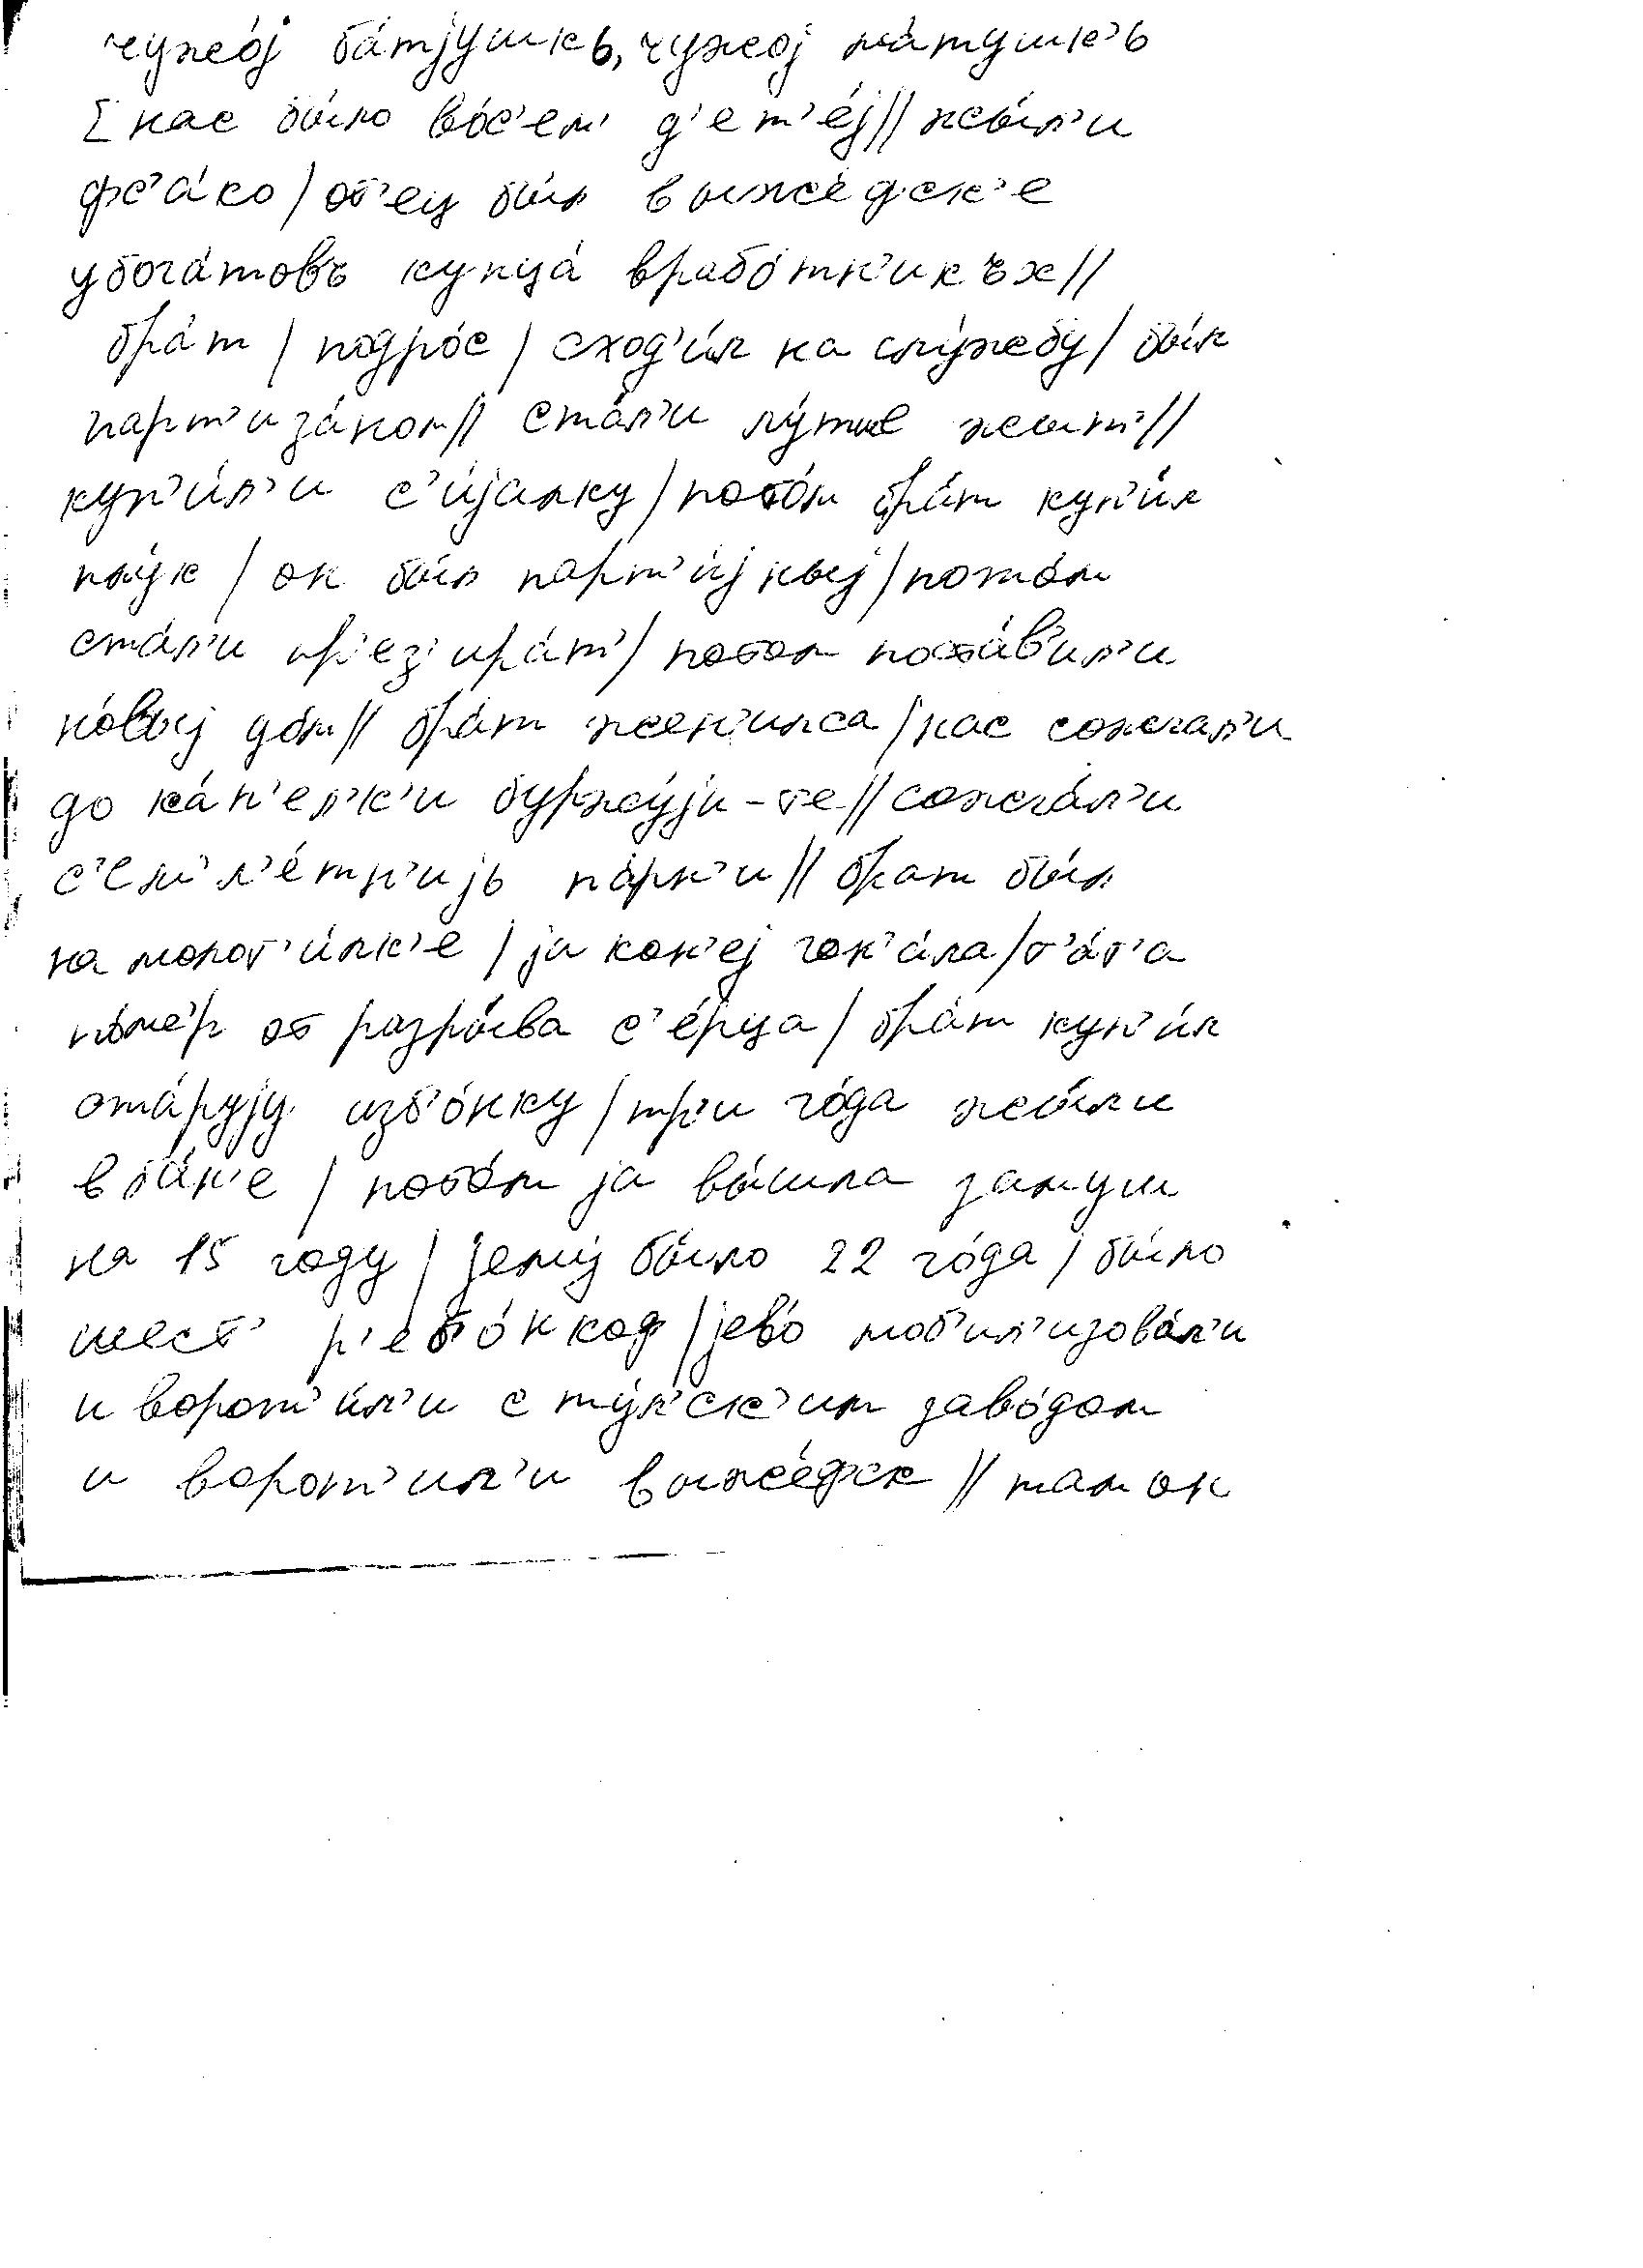 чужо́j ба́тjушкь, чужоj ма́тушк'ь
[нас бы́ло во́с'ем' д'ет'е́j // жы́л'и
фс'а́ко / от'ец бы́л в ыже́фск'е
убога́товъ купца́ врабо́тн'икъх //
бра́т / подро́с / сход'и́л на слу́жбу / бы́л
парт'иза́ном // ста́л'и лу́тше жыт' //
куп'и́л'и с'и́jалку / пото́м бра́т куп'и́л
плу́к / он бы́л парт'и́jныj / пото́м
ста́л'и пр'ез'ира́т' / потом поста́в'ил'и
но́выj до́м // бра́т жен'илса / нас сожгал'и
до ка́п'ел'к'и буржу́jи-те // сожга́л'и
с'ем'л'е́тн'иjь па́рн'и // брат бы́л
на молот'и́лк'е / jа кон'еj гон'а́ла / т'а́т'а
по́мер от разры́ва с'е́рца / бра́т куп'и́л
ста́руjу изб'о́нку / тр'и го́да жы́ли
в ба́н'е / пото́м jа вы́шла замуш
на 15 году / jему́ бы́ло 22 го́да / бы́ло
шест' р'еб'о́нкоф / jево́ моб'ил'изова́л'и
и ворот'и́л'и с ту́л'ск'им заво́дом
и ворот'ил'и в ыже́фск // там он